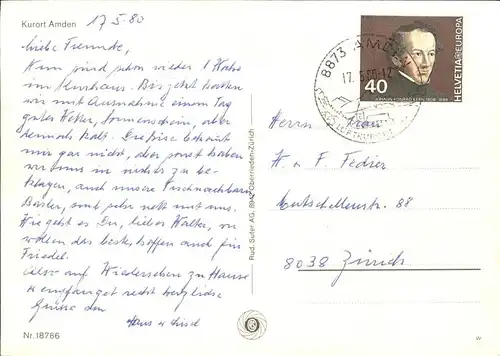 Kurort Amden
17.5.80
Liebe Freunde,
Nun sind schon wieder 1 Woche
im Kurhaus. Bis jetzt hatten
wir mit Ausnahme einem Tag
gutes Wetter, Sonnenschein, aber
kalt. bekommt
mir gar nicht, aber sonst haben
wir uns in nichts zu be-
klagen, auch unsere Tischnachbarn,
Basler, sind sehr nett mit uns.
Wie geht es Dir, lieber Walter, wir
wollen das beste hoffen auch für
Friedel.
Also auf Wiedersehen zu Hause
u empfanget recht herzliche
Grüsse von
Hans u
Nr. 18766
Rud. Suter AG, 8942 Oberrieden-Zürich
8873 AMDEN
17.5.80-12
40
HELVETIA EUROPA
JOHANN KONRAD KERN 1808-1888
Herrn u Frau
H. u F.
Mutschellenstr. 88
8038 Zürich